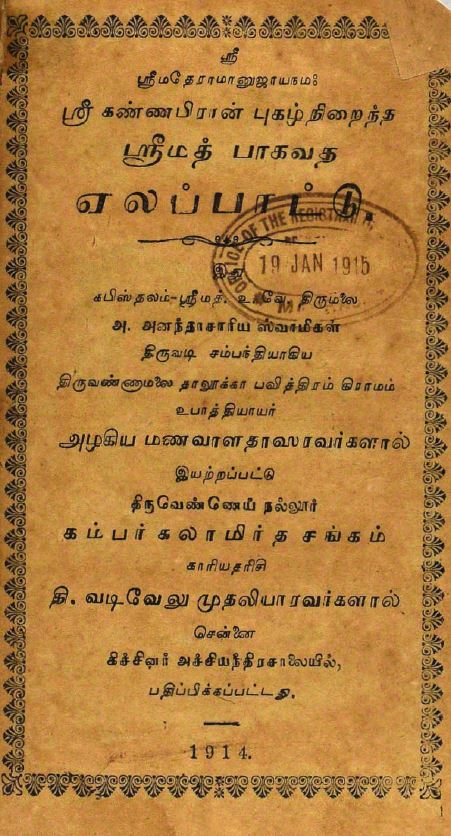 ஸ்ரீ
ஸ்ரீமதேராமானுஜாயநம:
ஸ்ரீ கண்ணபிரான் புகழ்நிறைந்த
ஸ்ரீமத் பாகவத
ஏலப்பாட்டு.
OFFICE OF THE REGISTRAR
19 JAN 1915
இஃது
கபிஸ்தலம்-ஸ்ரீமத். உ.வே. திருமலை
அ. அனந்தாசாரிய ஸ்வாமிகள்
திருவடி சம்பந்தியாகிய
திருவண்ணாமலை தாலூக்கா பவித்திரம் கிராமம்
உபாத்தியாயர்
அழகிய மணவாளதாஸரவர்களால்
இயற்றப்பட்டு
திருவெண்ணெய் நல்லூர்
கம்பர் கலாமிர்த சங்கம்
காரியதரிசி
தி. வடிவேலு முதலியாரவர்களால்
சென்னை
கிச்சினர் அச்சியந்திரசாலையில்,
பதிப்பிக்கப்பட்டது.
1914.